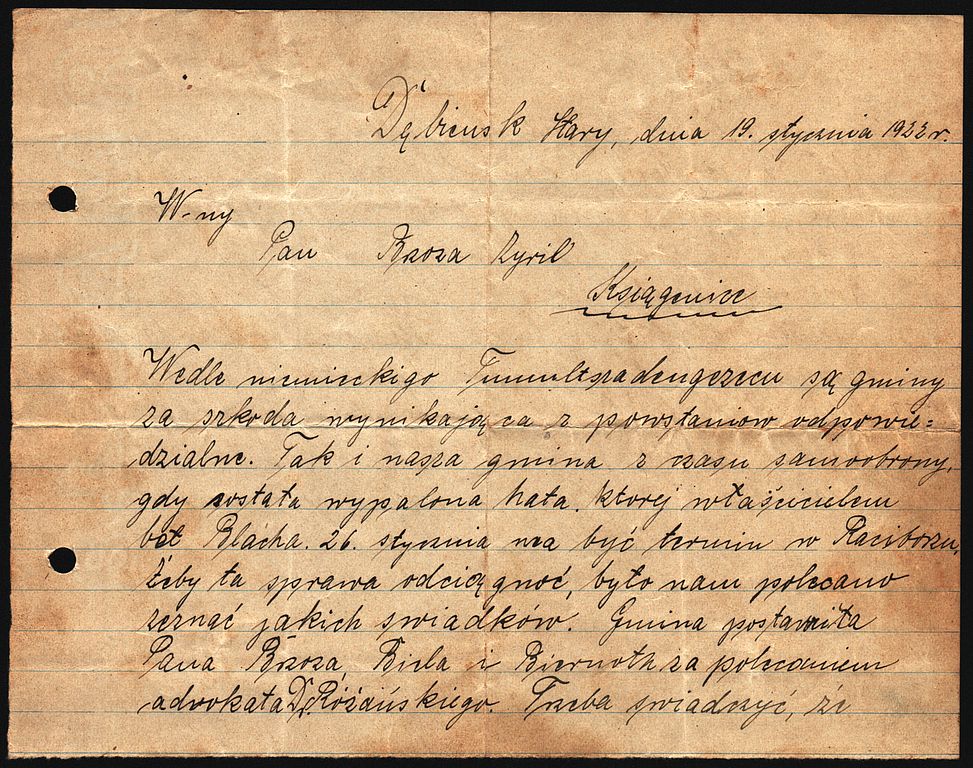 Dębieńsk Stary, dnia 19. stycznia 1922 r.
W-ny
Pan Brzoza Zyril
Książenice
Wedle niemieckigo Tumultszadengezecu są gminy
za szkoda wynikająca z powstaniow odpowie=
dzialne. Tak i nasza gmina z czasu samoobrony,
gdy została wypalona hata. ktorej właścicielem
beł Blacha. 26. stycznia ma być termin w Raciborzu,
Żeby ta sprawa odciągnoć, było nam polecano
zeznać jakich swiadków. Gmina postawiła
Pana Brzoza, Biela i Biernotha za polecaniem
advokata Dr. Różańskiego. Trzeba swiadczyć, że